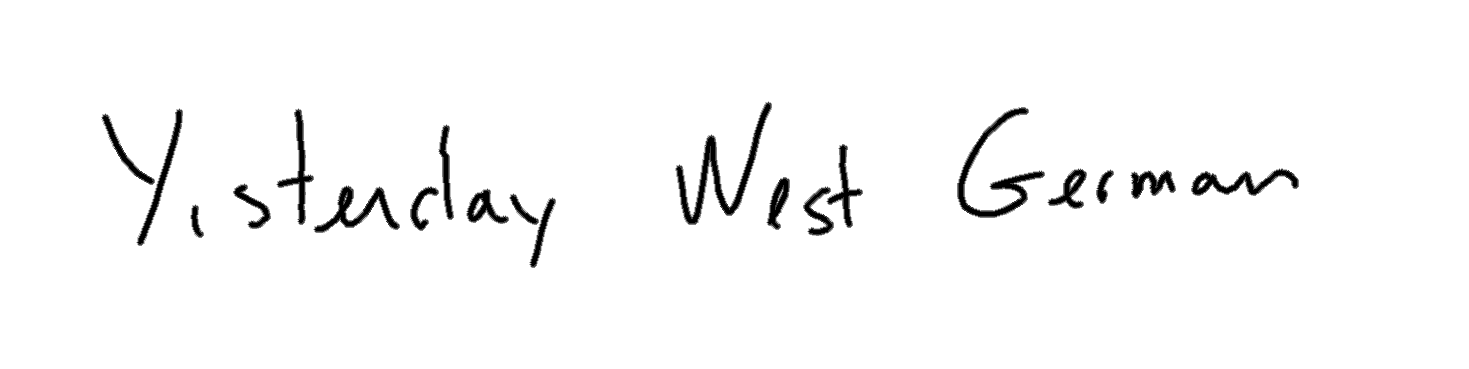 Yisterday West German